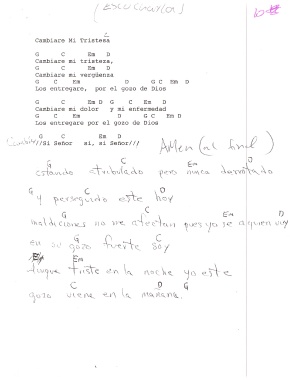 (ESCUCHARLA)
Cambiare Mi Tristeza
G C Em D
Cambiare mi tristeza,
G C Em D
Cambiare mi vergüenza
G C Em D G C Em D
Los entregare, por el gozo de Dios
G C Em D G C Em D
Cambiare mi dolor y mi enfermedad
G C Em D G C Em D
Los entregare por el gozo de Dios
G C Em D
///Si Señor si, si Señor/// AMEN (al final)
G C Em D
estando atribulado pero nunca derrotado
G C D G
y perseguido este hoy
G C Em D
maldiciones no me afectan pues yo se a quien voy
G C D G
en su gozo fuerte soy
Em
Aunque triste en la noche ya este
C D G
gozo viene en la mañana.